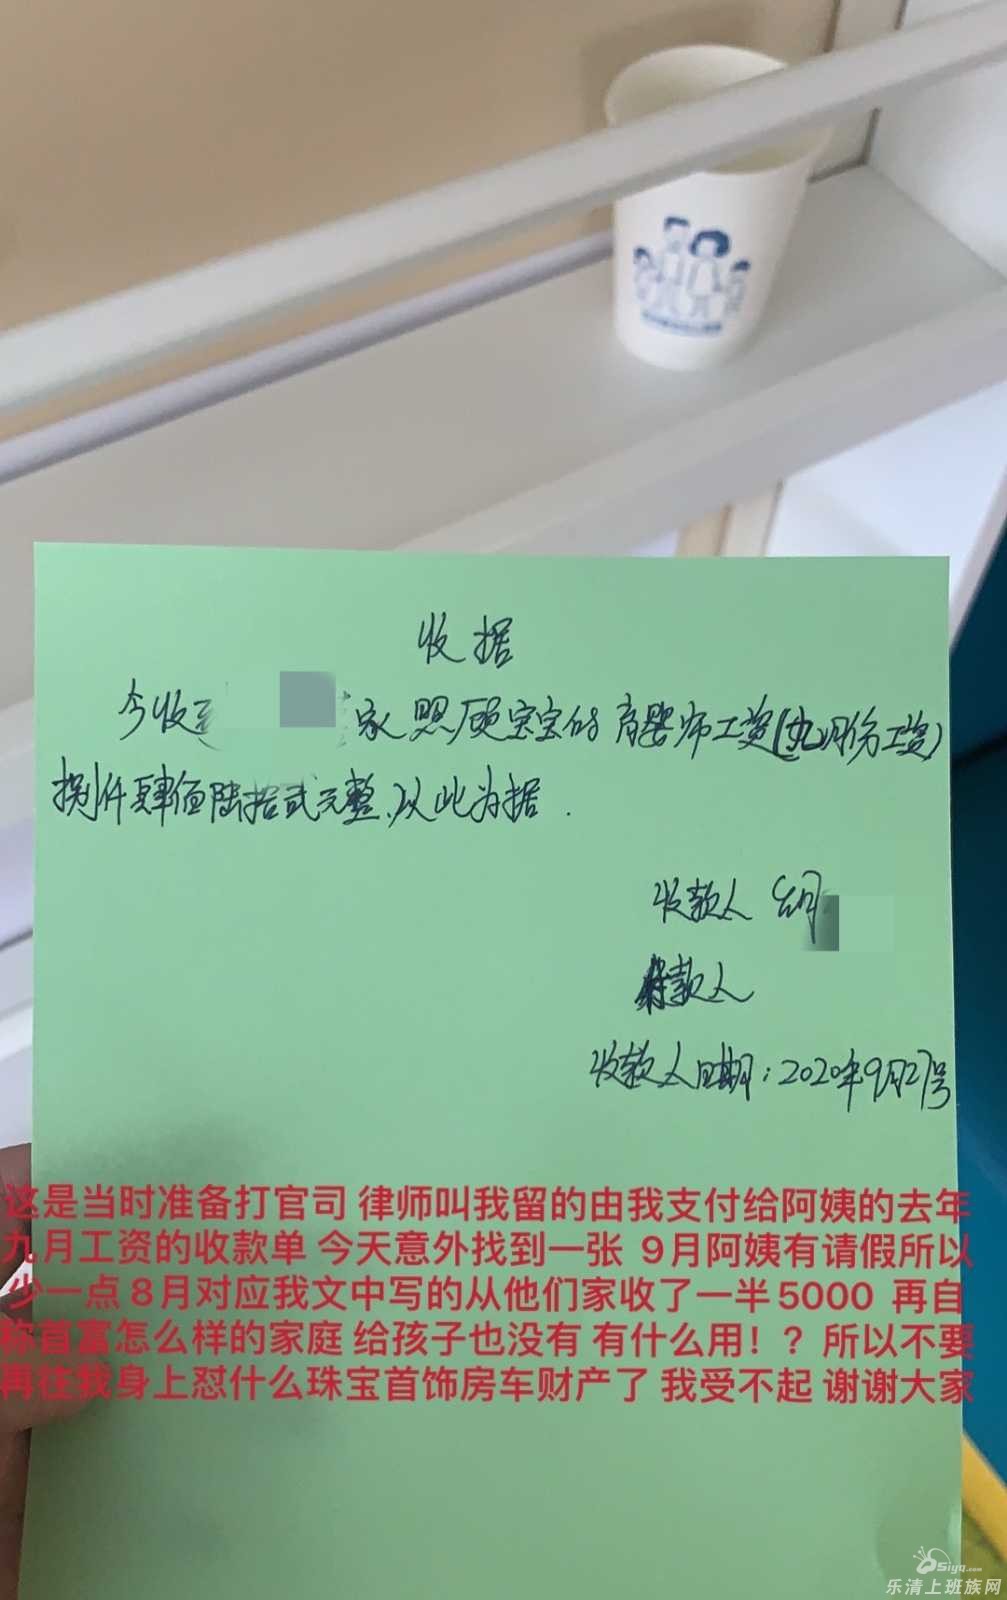 收据
今收到 家照顾宝宝的育婴师工资(九月份工资)
捌仟肆佰陆拾贰元整,以此为据.
收款人 胡
付款人
收款人日期:2020年9月27号
这是当时准备打官司 律师叫我留的由我支付给阿姨的去年
九月工资的收款单 今天意外找到一张 9月阿姨有请假所以
少一点 8月对应我文中写的从他们家收了一半5000 再自
称首富怎么样的家庭 给孩子也没有 有什么用!? 所以不要
再往我身上怼什么珠宝首饰房车财产了 我受不起 谢谢大家
乐清上班族网